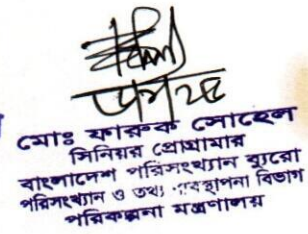 মোঃ ফারুক সোহেল
সিনিয়র প্রোগ্রামার
বাংলাদেশ পরিসংখ্যান ব্যুরো
পরিসংখ্যান ও তথ্য ব্যবস্থাপনা বিভাগ
পরিকল্পনা মন্ত্রণালয়